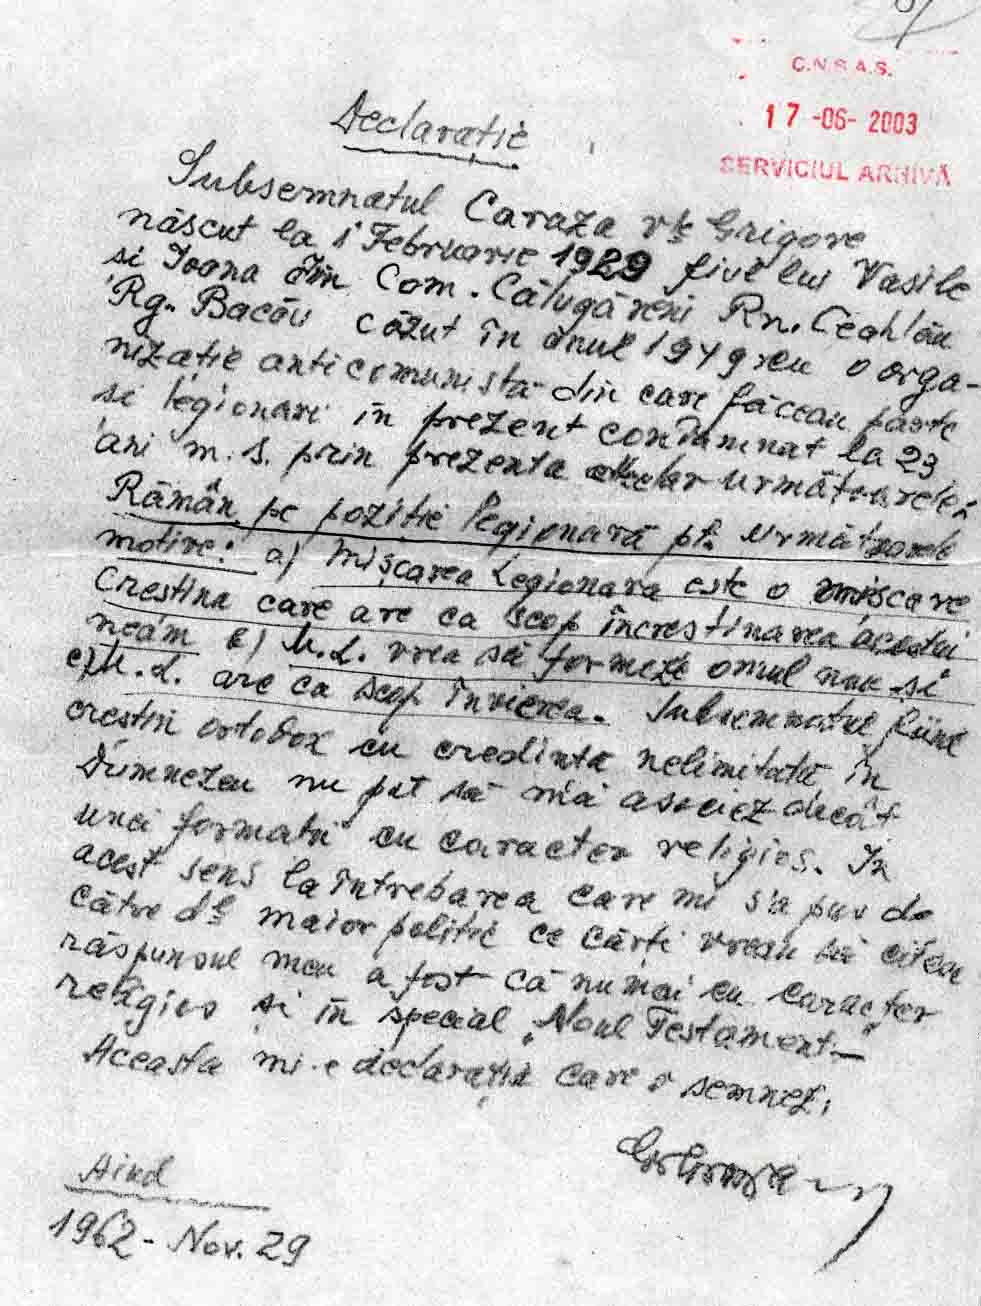 C.N.S.A.S.
17-06-2003
SERVICIUL ARHIVĂ
Declarație
Subsemnatul Caraza Grigore
născut la 1 Februarie 1929 fiul lui Vasile
si Ioana din Com. Călugăreni Rn. Ceahlău
Rg. Bacău căzut în anul 1949 cu o orga-
nizație anticomunistă din care făceau parte
si legionari în prezent condamnat la 23
ani m.s. prin prezenta declar următoarele:
Rămân pe pozitie legionară pt. următoarele
motive: a) Mișcarea Legionara este o miscare
Crestina care are ca scop încrestinarea acestui
neam b) M.L. vrea să formeze omul nou si
c) M.L. are ca scop învierea. Subsemnatul fiind
crestin ortodox cu credinta nelimitată în
Dumnezeu nu pot să mă asociez decât
unei formatii cu caracter religios. În
acest sens la întrebarea care mi s'a pus de
către dl. maior politic ce cărți vreau să citesc
răspunsul meu a fost că numai cu caracter
religios si în special „Noul Testament"
Aceasta mi-e declarația care o semnez.
Aiud
1962 - Nov. 29